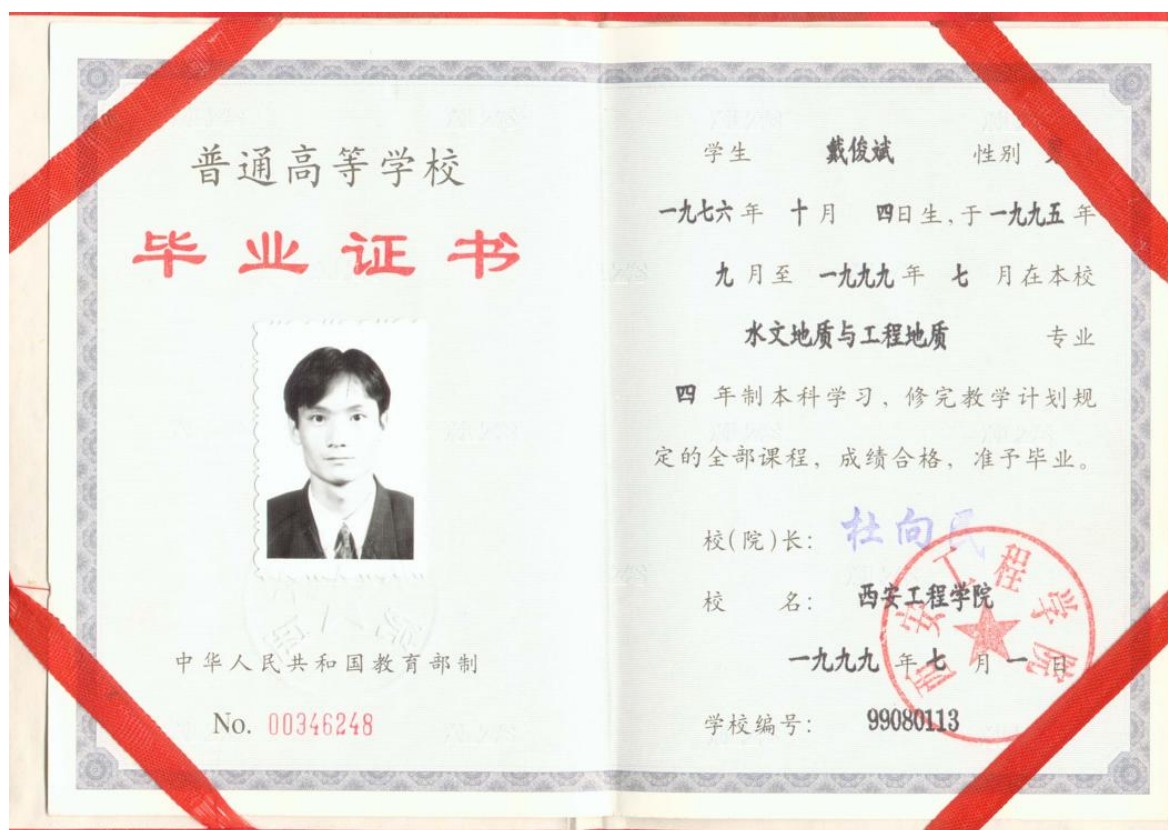 普通高等学校
毕业证书
中华人民共和国教育部制
No. 00346248
学生 戴俊斌 性别 男
一九七六年 十月 四日生,于一九九五年
九月至 一九九九年 七 月在本校
水文地质与工程地质 专业
四 年制本科学习,修完教学计划规
定的全部课程,成绩合格,准予毕业。
校(院)长: 杜向民
校 名: 西安工程学院
一九九九年七月一日
学校编号: 99080113
西安工程学院